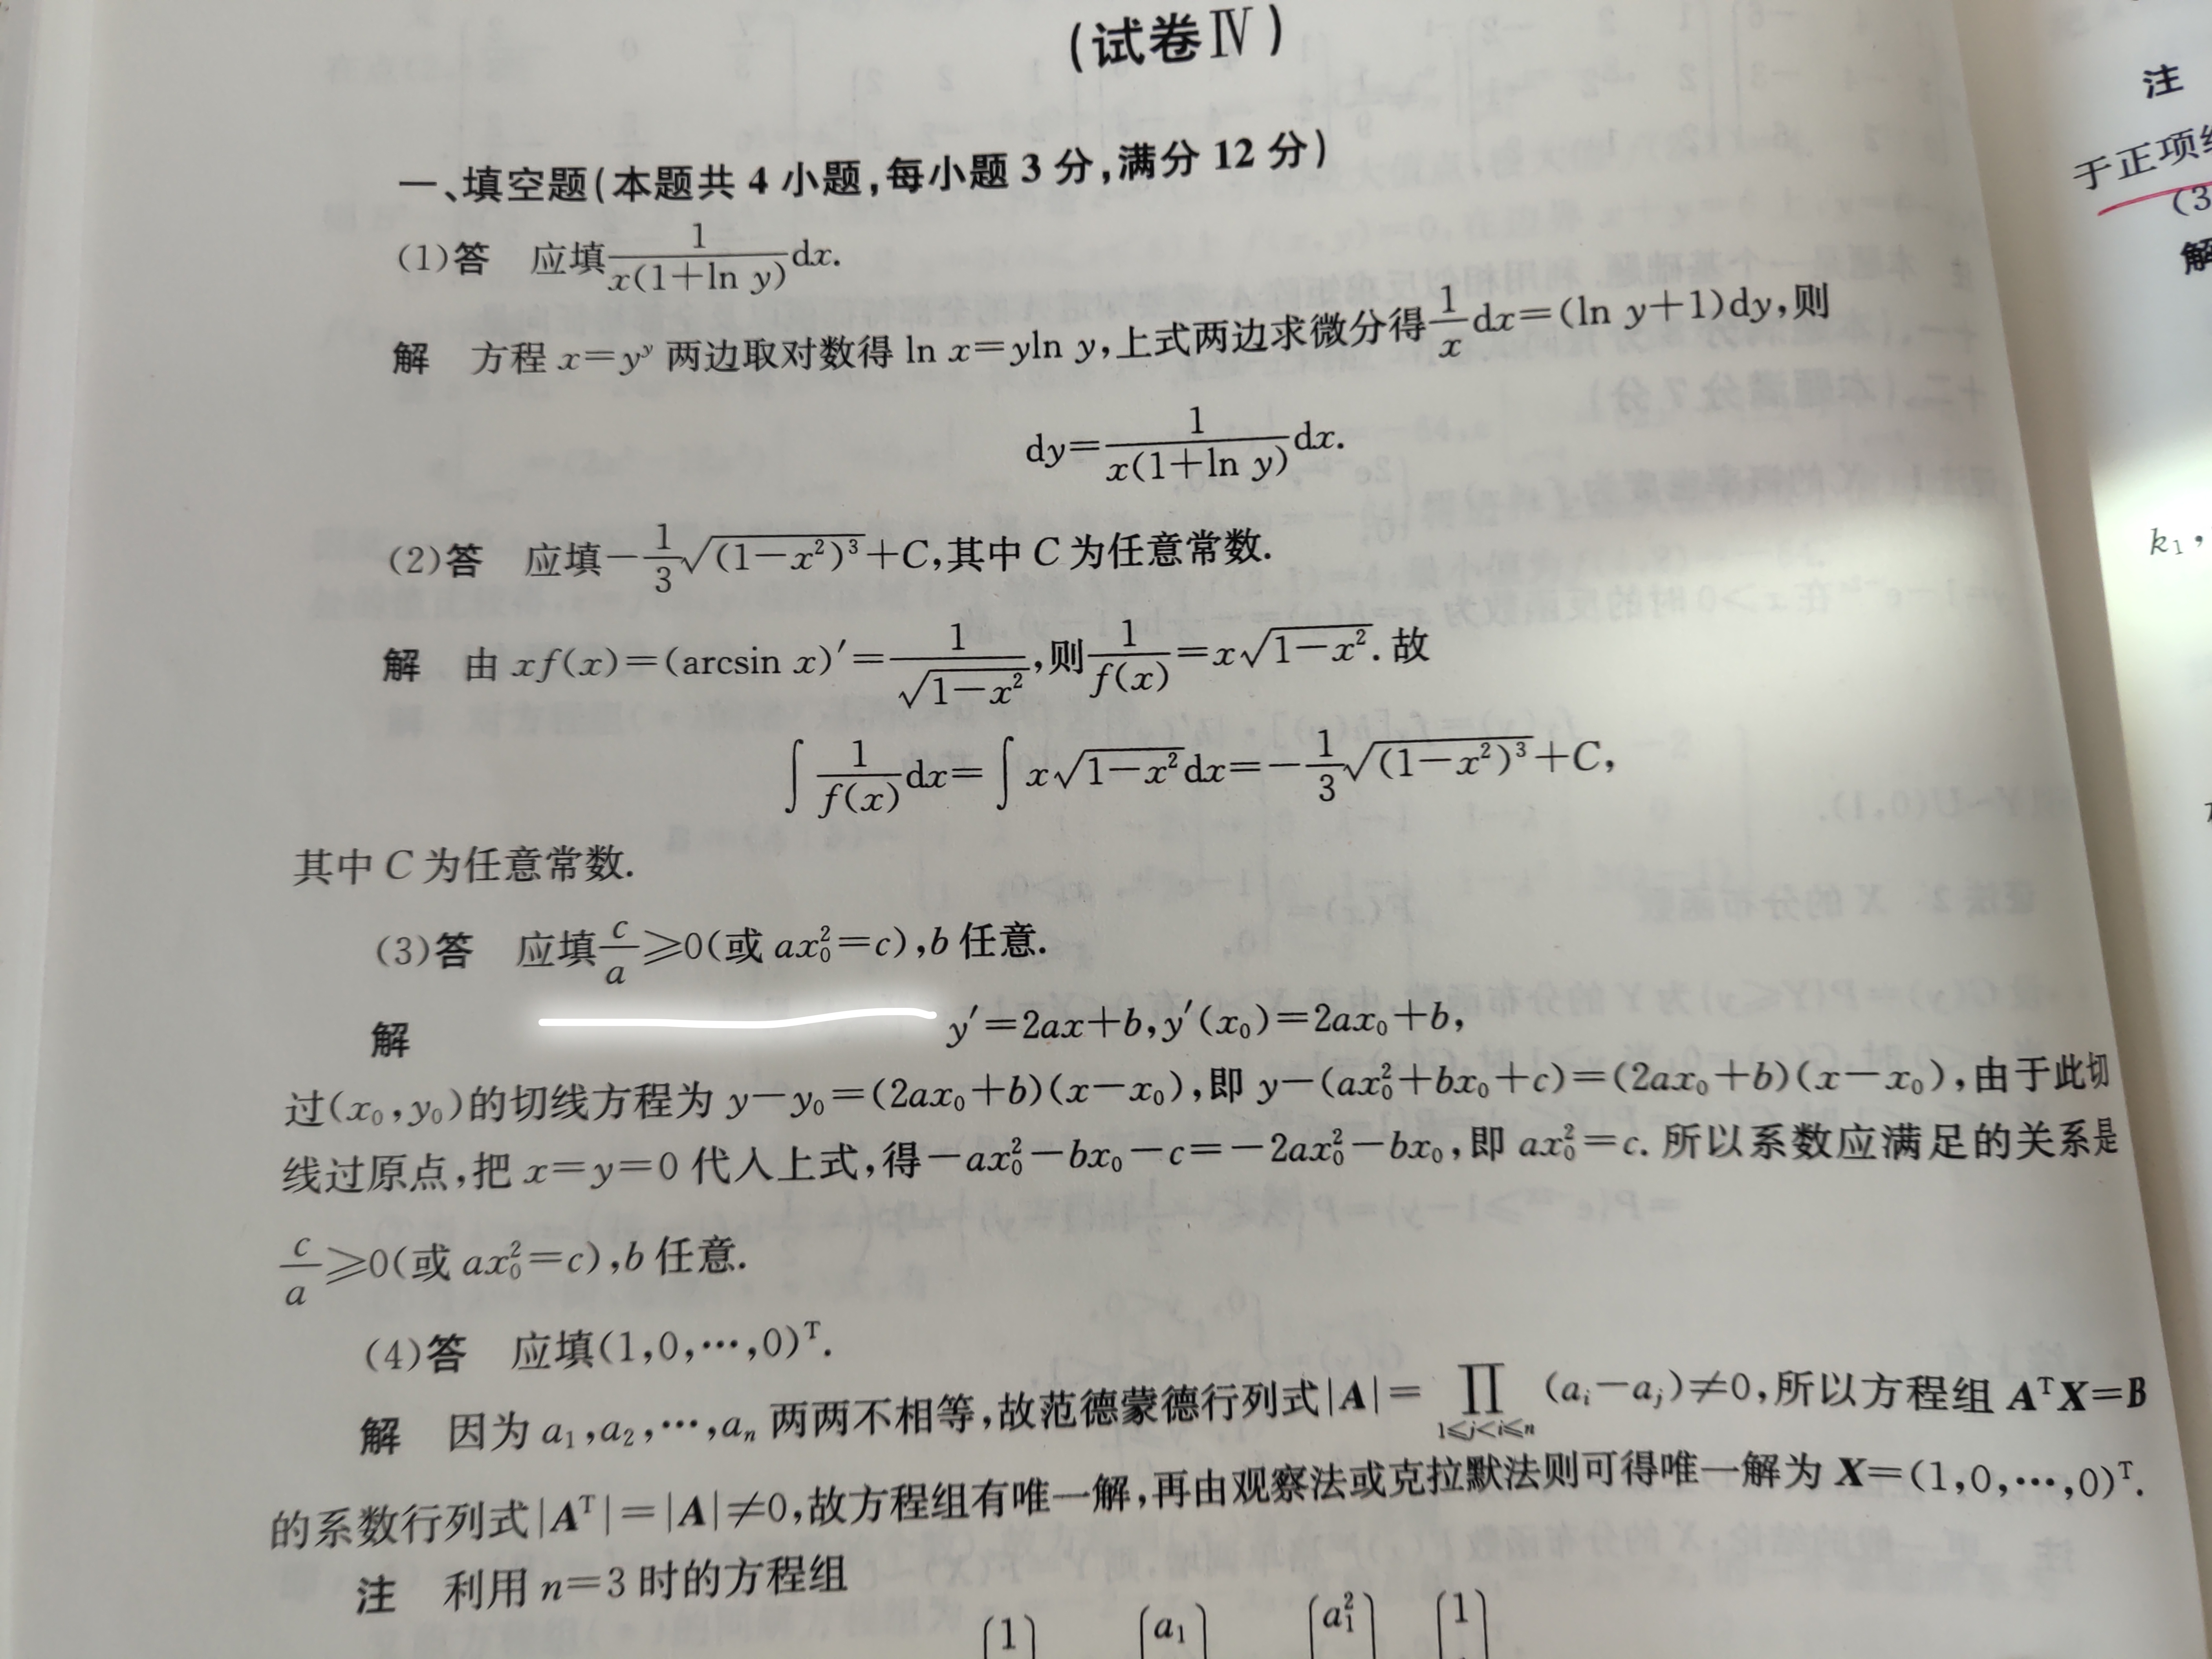 (试卷Ⅳ)
一、填空题(本题共 4 小题,每小题 3 分,满分 12 分)
(1)答 应填\frac{1}{x(1+ln y)}dx.
解 方程 x=y^y 两边取对数得 ln x=yln y,上式两边求微分得\frac{1}{x}dx=(ln y+1)dy,则
dy=\frac{1}{x(1+ln y)}dx.
(2)答 应填-\frac{1}{3}\sqrt{(1-x²)³}+C,其中 C 为任意常数.
解 由 xf(x)=(arcsin x)′=\frac{1}{\sqrt{1-x²}},则\frac{1}{f(x)}=x\sqrt{1-x²}.故
∫\frac{1}{f(x)}dx=∫x\sqrt{1-x²}dx=-\frac{1}{3}\sqrt{(1-x²)³}+C,
其中 C 为任意常数.
(3)答 应填\frac{c}{a}≥0(或 ax₀²=c),b 任意.
解 y′=2ax+b,y′(x₀)=2ax₀+b,
过(x₀,y₀)的切线方程为 y-y₀=(2ax₀+b)(x-x₀),即 y-(ax₀²+bx₀+c)=(2ax₀+b)(x-x₀),由于此切
线过原点,把 x=y=0 代入上式,得-ax₀²-bx₀-c=-2ax₀²-bx₀,即 ax₀²=c. 所以系数应满足的关系是
\frac{c}{a}≥0(或 ax₀²=c),b 任意.
(4)答 应填(1,0,…,0)^T.
解 因为 a₁,a₂,…,aₙ 两两不相等,故范德蒙德行列式|A|=∏_{1≤j<i≤n}(a_i-a_j)≠0,所以方程组 A^T X=B
的系数行列式|A^T|=|A|≠0,故方程组有唯一解,再由观察法或克拉默法则可得唯一解为 X=(1,0,…,0)^T.
注 利用 n=3 时的方程组
1 a₁ a₁² 1
注
于正项
(3
解
k₁,